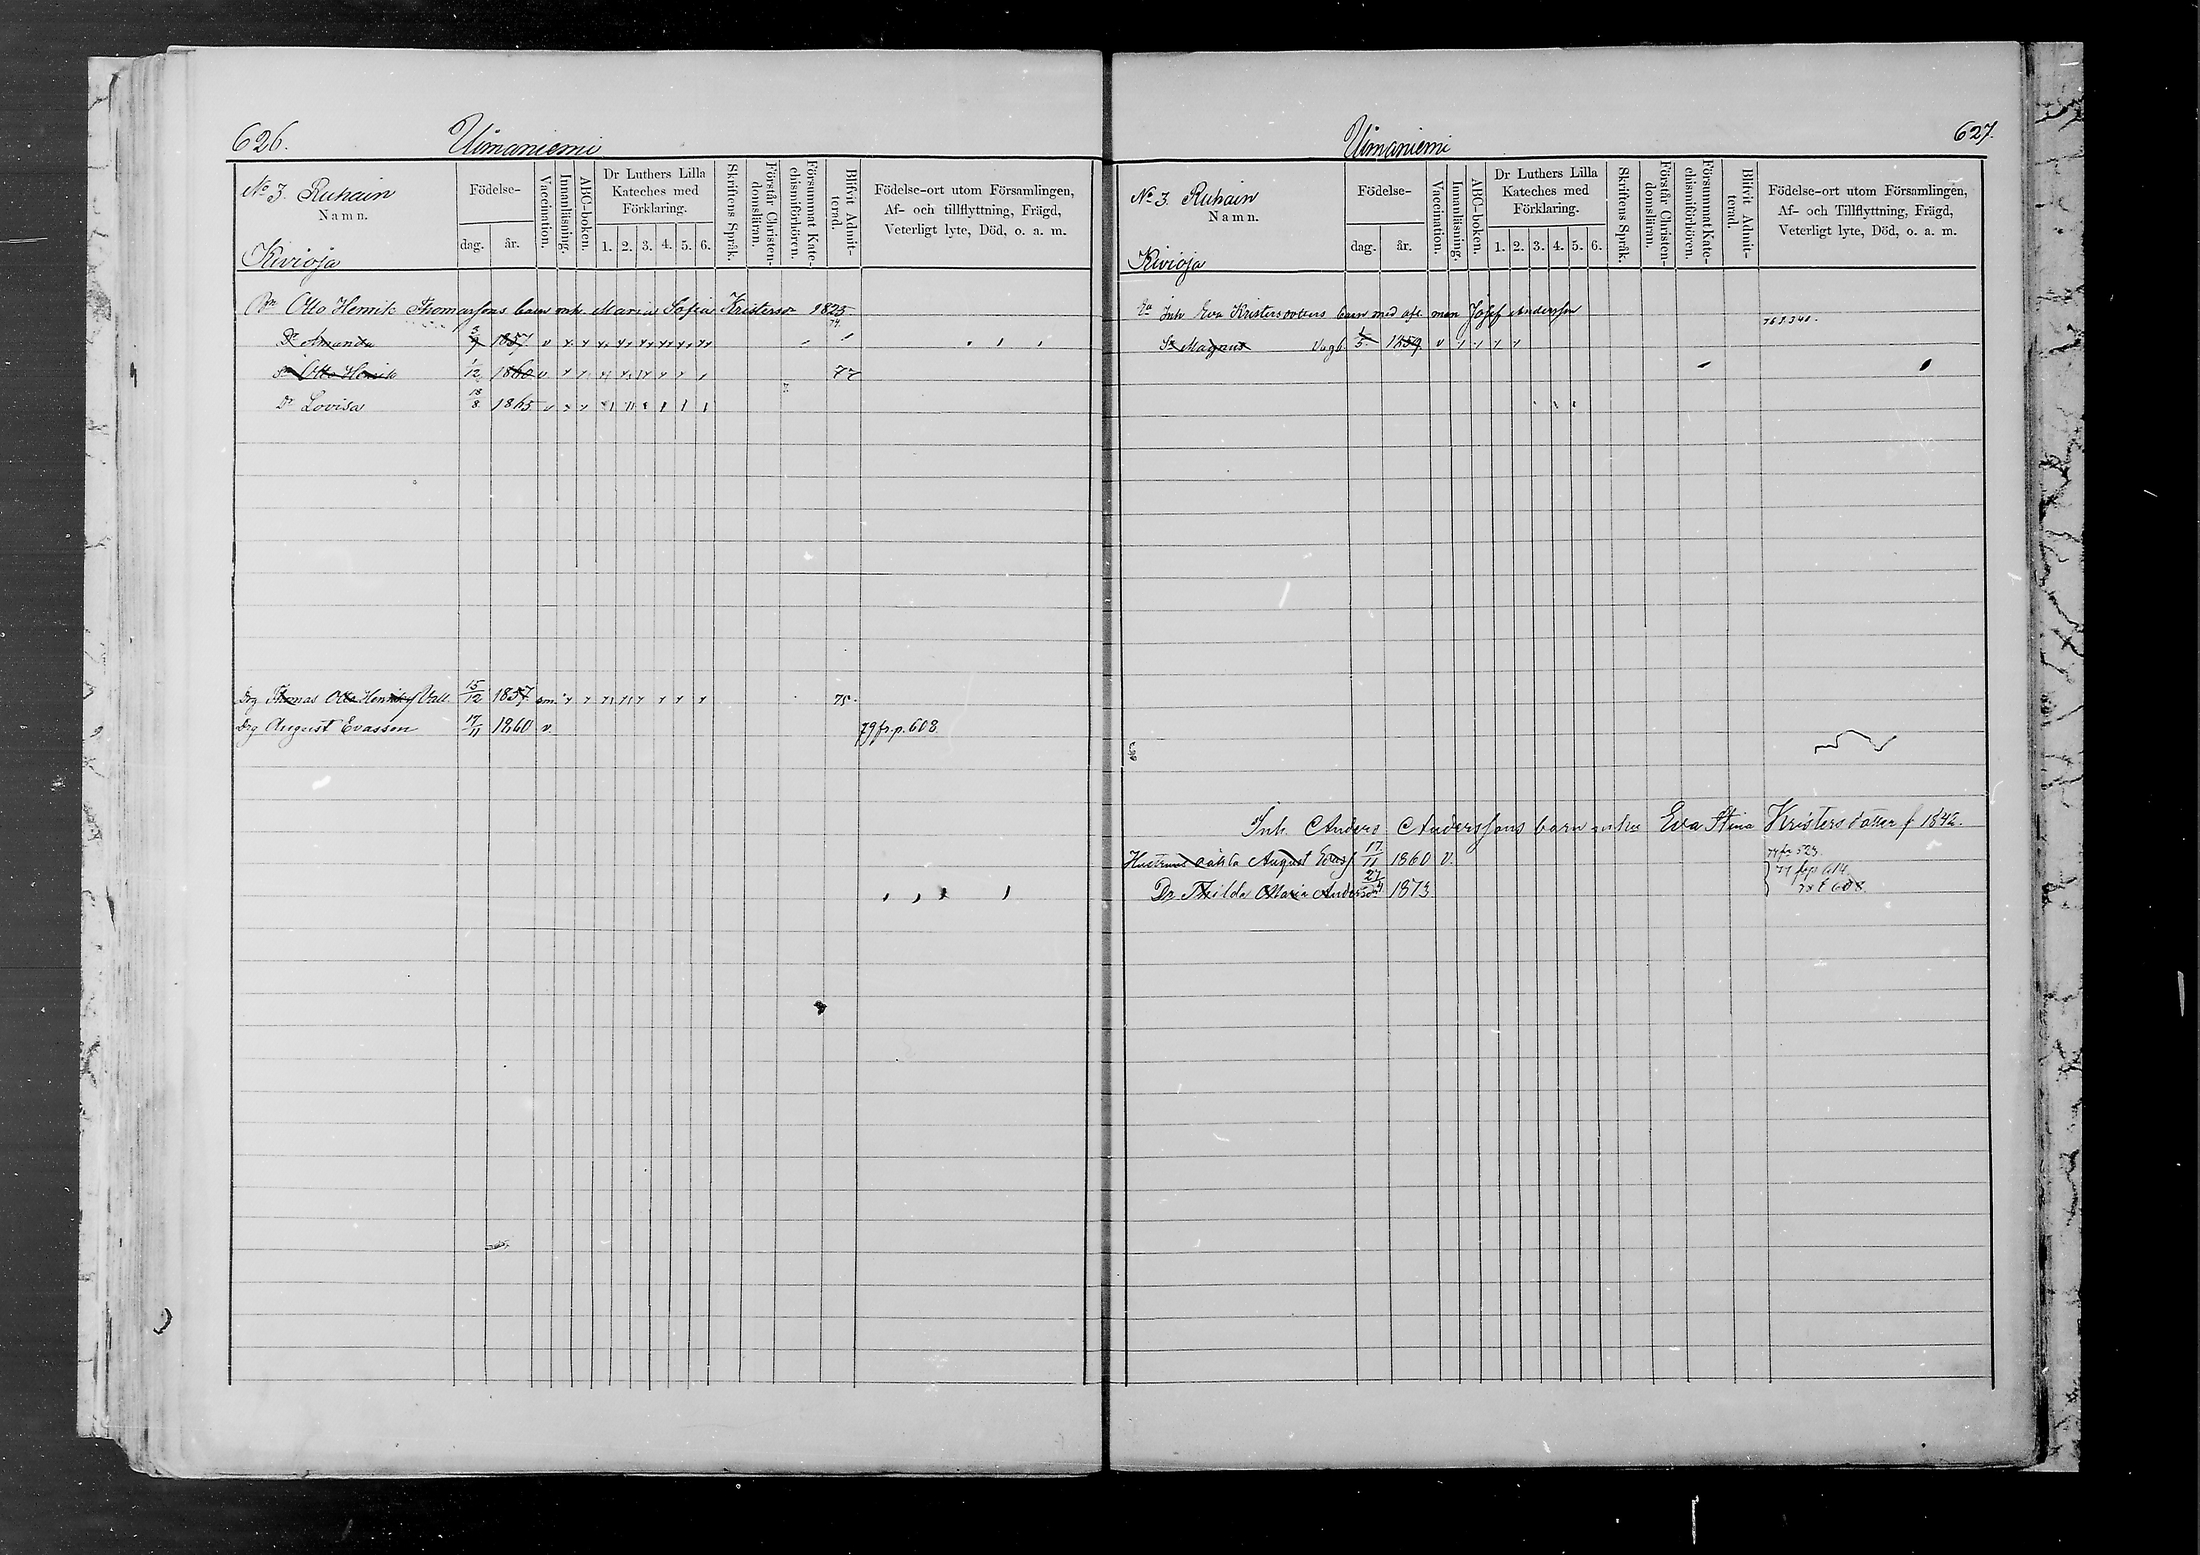 626. Uimaniemi
No 3. Ruhain
Namn.
Kivioja
Födelse-
dag. år.
Vaccination.
Innanläsning.
ABC-boken.
Dr Luthers Lilla
Kateches med
Förklaring.
1. 2. 3. 4. 5. 6.
Skriftens Språk.
Förstår Christen-
domsläran.
Försummat Kate-
chismiförhören.
Blifvit Admit-
terad.
Födelse-ort utom Församlingen,
Af- och tillflyttning, Frägd,
Veterligt lyte, Död, o. a. m.
Bn Otto Henrik Thomassons barn mh. Maria Sofia Kristersd 1825
Dr Amanda 3/9 1857 v 74
Sn Otto Henrik 1/12 1860 v 77
Dr Lovisa 18/8 1865 v
Drg Thomas Otto Henriks Vall. 15/12 1857 sm. 75.
Drg August Evasson 17/11 1860 v. 79 fr. p. 608.
Uimaniemi 627.
No 3. Ruhain
Namn.
Kivioja
Födelse-
dag. år.
Vaccination.
Innanläsning.
ABC-boken.
Dr Luthers Lilla
Kateches med
Förklaring.
1. 2. 3. 4. 5. 6.
Skriftens Språk.
Förstår Christen-
domsläran.
Försummat Kate-
chismiförhören.
Blifvit Admit-
terad.
Födelse-ort utom Församlingen,
Af- och Tillflyttning, Frägd,
Veterligt lyte, Död, o. a. m.
Inh Eva Kristersdotters barn med afl. man Josef Andersson
Sn Magnus 1/5 1859 v
Inh. Anders Anderssons barn Eva Stina Kristersdotter f 1842.
Hustruns oäkta August Evas 17/11 1860 v. 77 fr 523.
Dr Thilda Maria Andersd 27/4 1873 77 frp 614
78 t 608